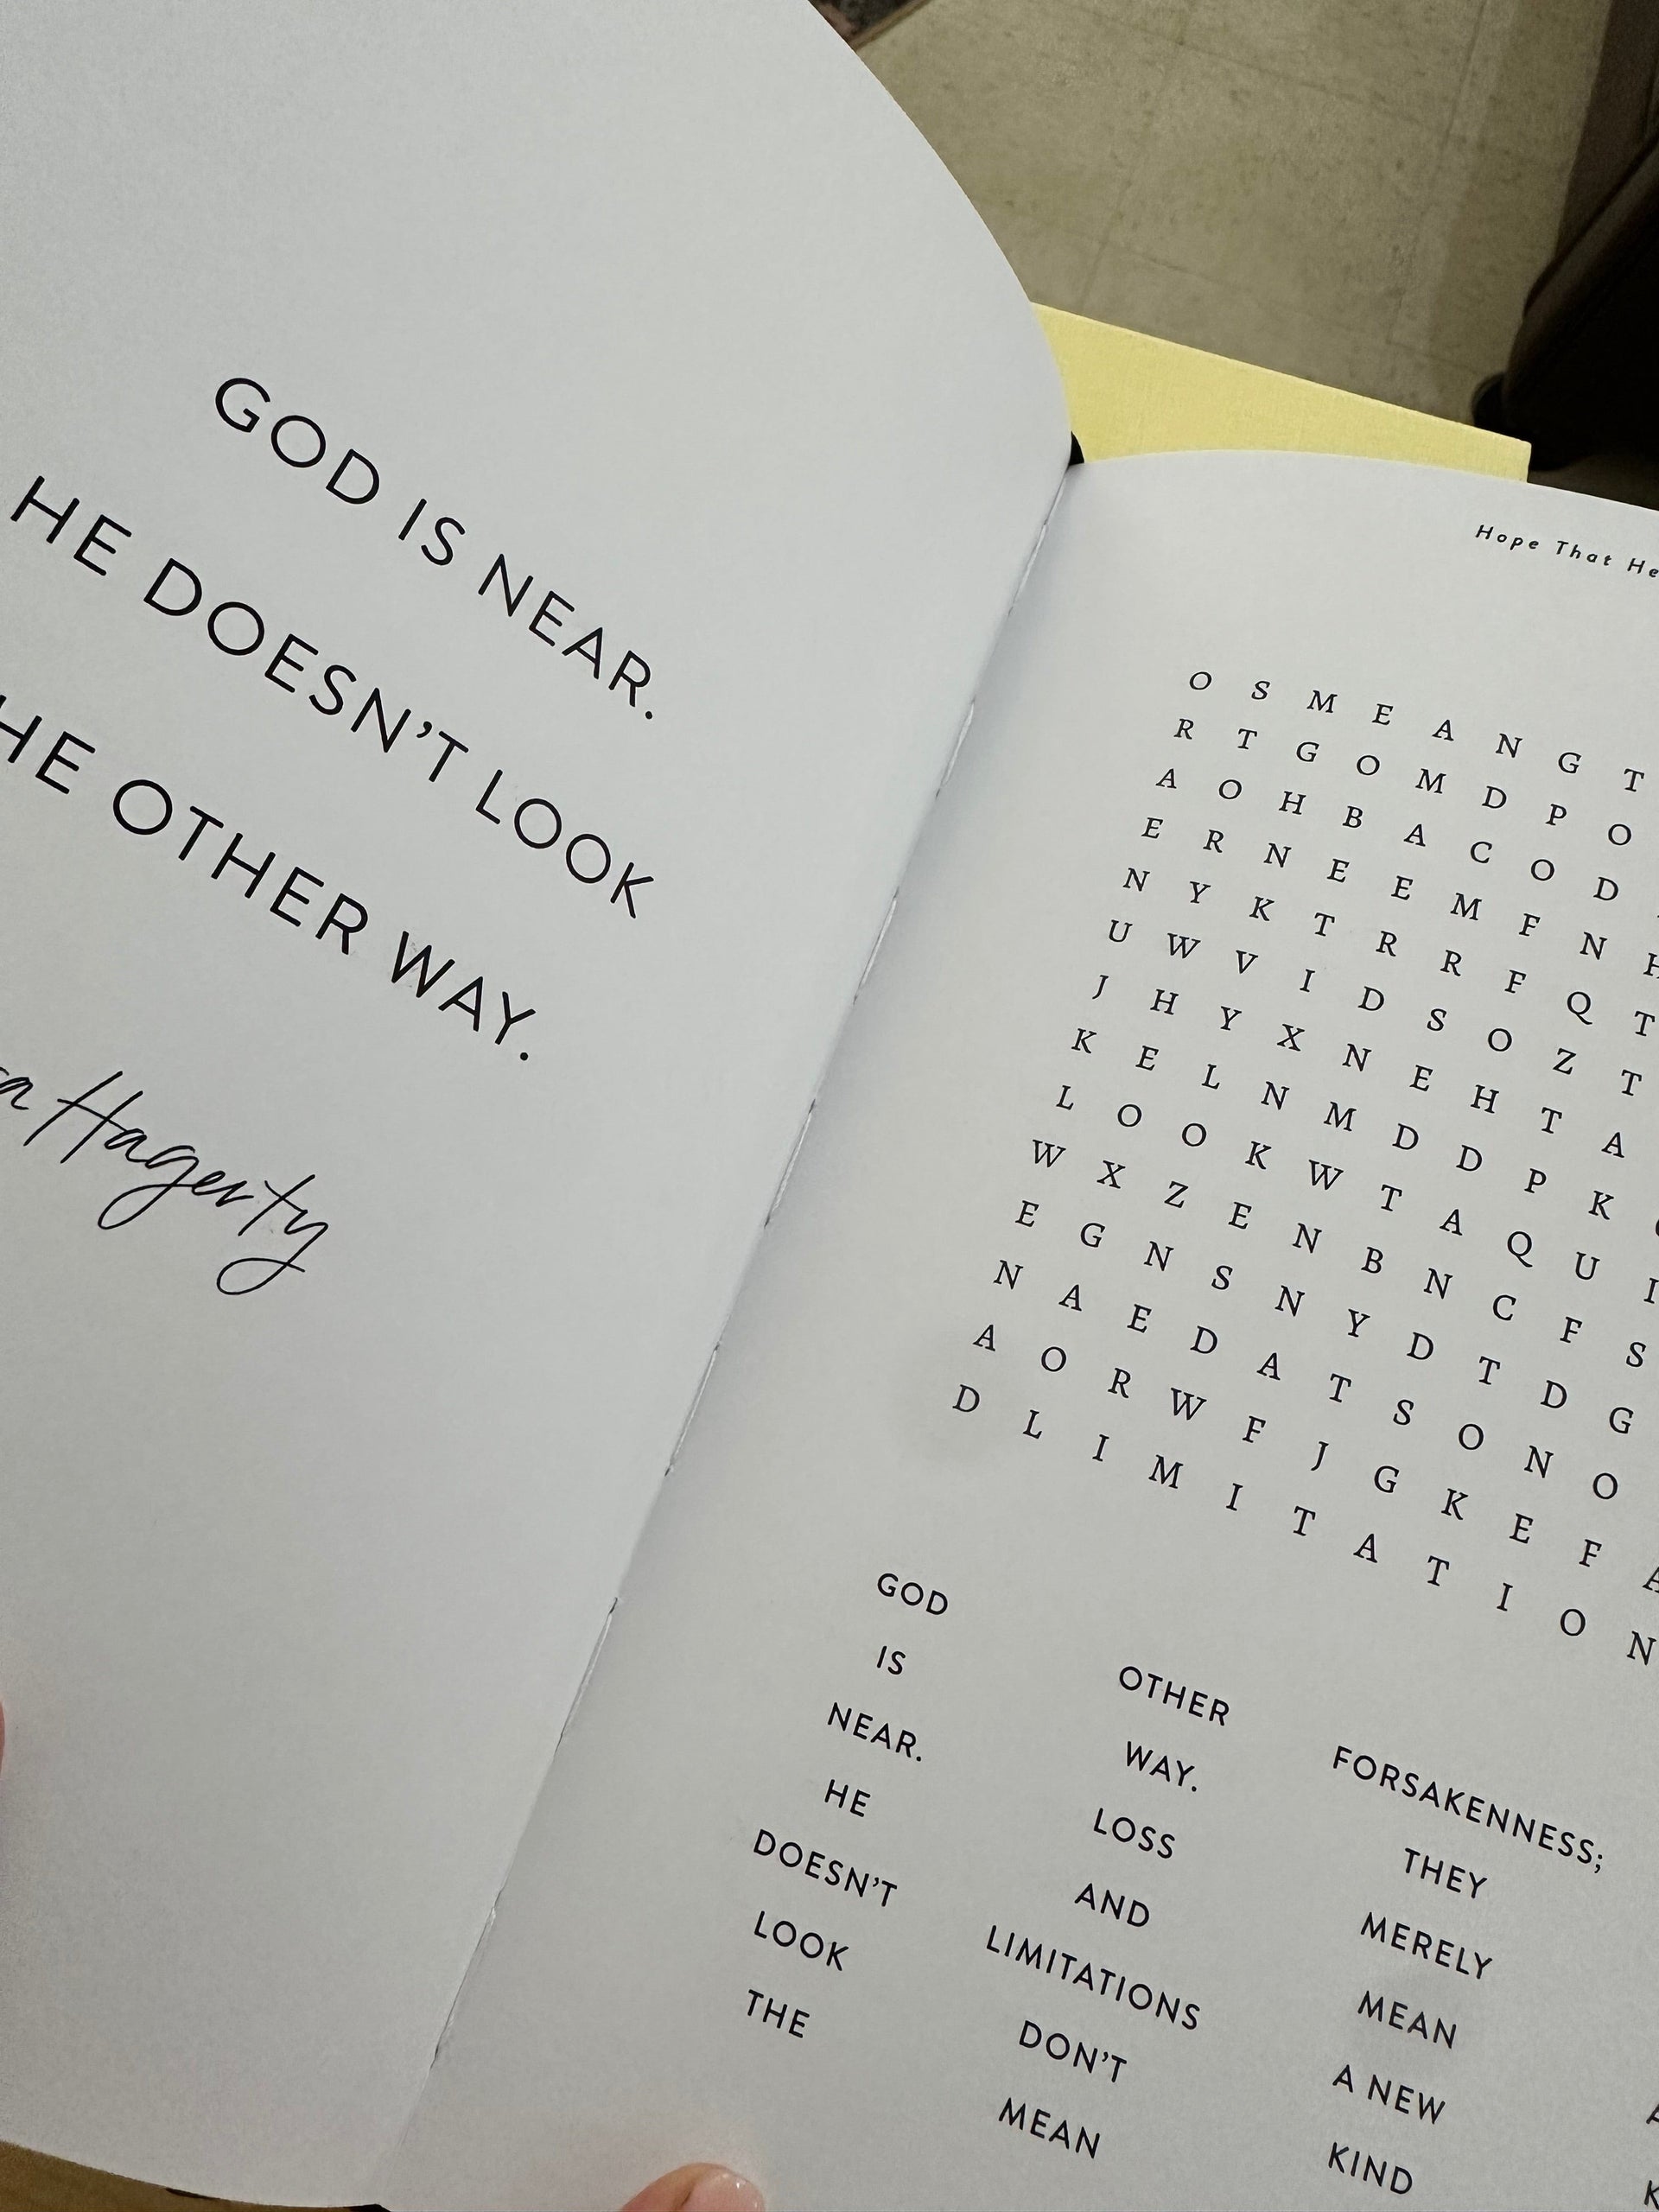 GOD IS NEAR.
HE DOESN'T LOOK
HE OTHER WAY.
Hagerty
Hope That He
O S M E A N G T
R T G O M D P O
A O H B A C O D
E R N E E M F N H
N Y K T R R F Q T
U W V I D S O Z T
J H Y X N E H T A
K E L N M D D P K
L O O K W T A Q U I
W X Z E N B N C F S
E G N S N Y D T D G
N A E D A T S O N O
A O R W F J G K E F A
D L I M I T A T I O N
GOD
IS
NEAR.
HE
DOESN'T
LOOK
THE
OTHER
WAY.
LOSS
AND
LIMITATIONS
DON'T
MEAN
FORSAKENNESS;
THEY
MERELY
MEAN
A NEW
KIND